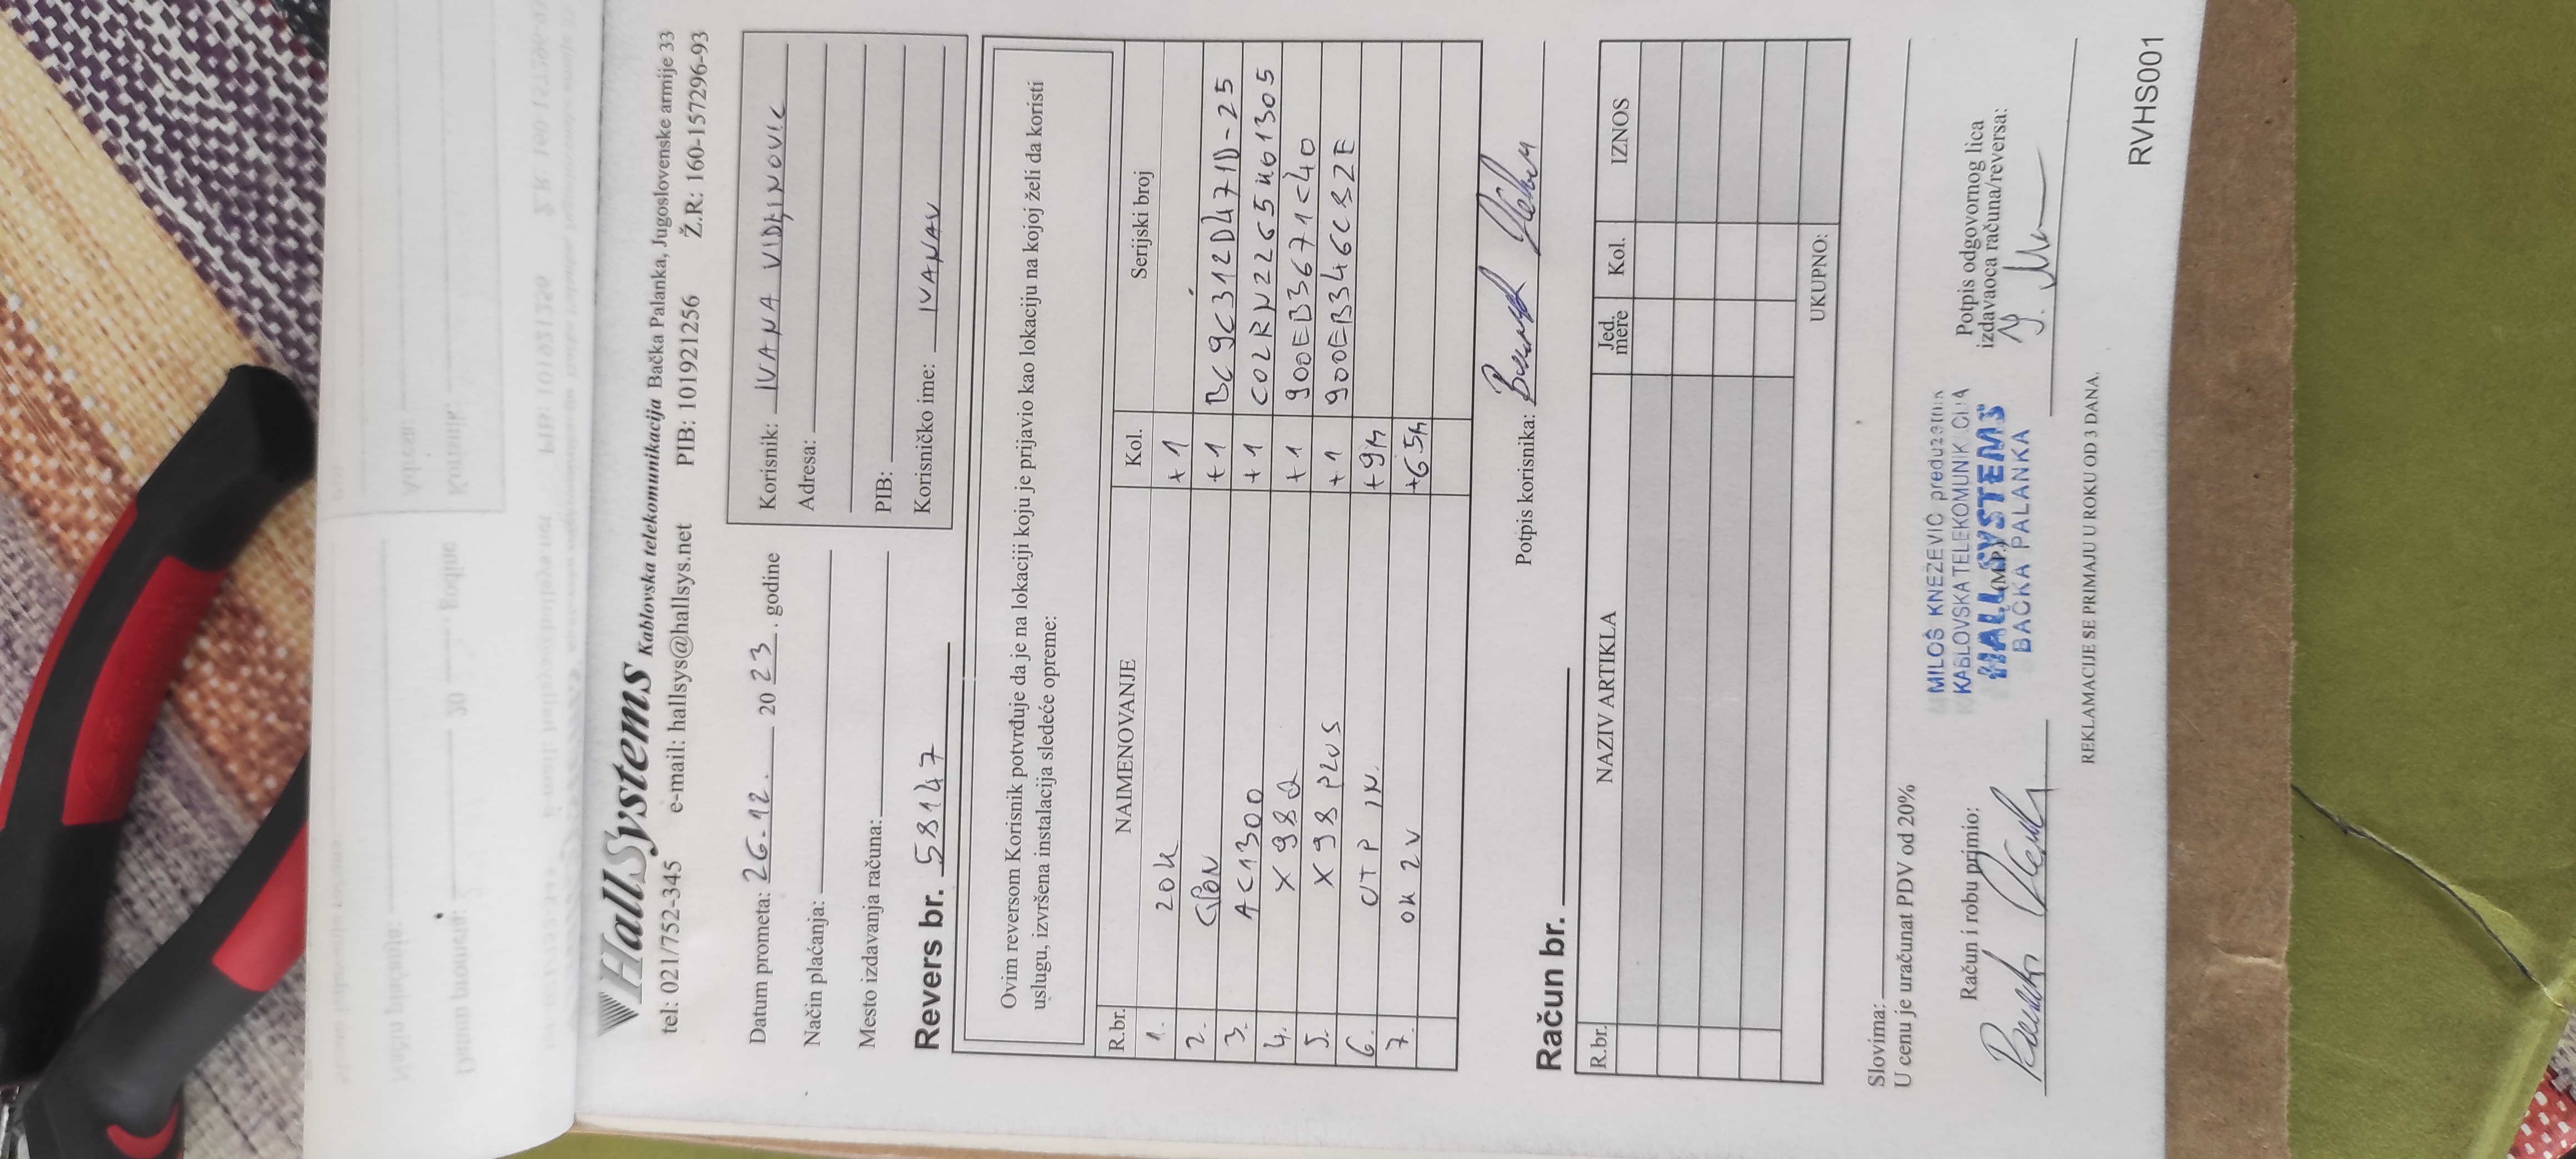 HallSystems Kablovska telekomunikacija Bačka Palanka, Jugoslovenske armije 33
tel: 021/752-345 e-mail: hallsys@hallsys.net PIB: 101921256 Ž.R.: 160-157296-93
Datum prometa: 26.12. 2023. godine
Način plaćanja:
Mesto izdavanja računa:
Revers br. 58147
Korisnik: IVANA VIDEINOVIC
Adresa:
PIB:
Korisničko ime: IVANAV
Ovim reversom Korisnik potvrđuje da je na lokaciji koju je prijavio kao lokaciju na kojoj želi da koristi
uslugu, izvršena instalacija sledeće opreme:
R.br. NAIMENOVANJE Kol. Serijski broj
1. ZOK +1
2. GPON +1 BC9C312D471D-25
3. AC1300 +1 C02RN2265461305
4. X98Q +1 900EB3671C40
5. X98 PLUS +1 900EB346C82E
6. UTP IN. +9m
7. OK 2V +65m
Potpis korisnika:
Račun br.
R.br. NAZIV ARTIKLA Jed. mere Kol. IZNOS
UKUPNO:
Slovima:
U cenu je uračunat PDV od 20%
Račun i robu primio:
MILOŠ KNEZEVIC preduzetnik
KABLOVSKA TELEKOMUNIKACIJA
HALL SYSTEMS
(M.P.)
BAČKA PALANKA
Potpis odgovornog lica
izdavaoca računa/reversa:
REKLAMACIJE SE PRIMAJU U ROKU OD 3 DANA.
RVHS001